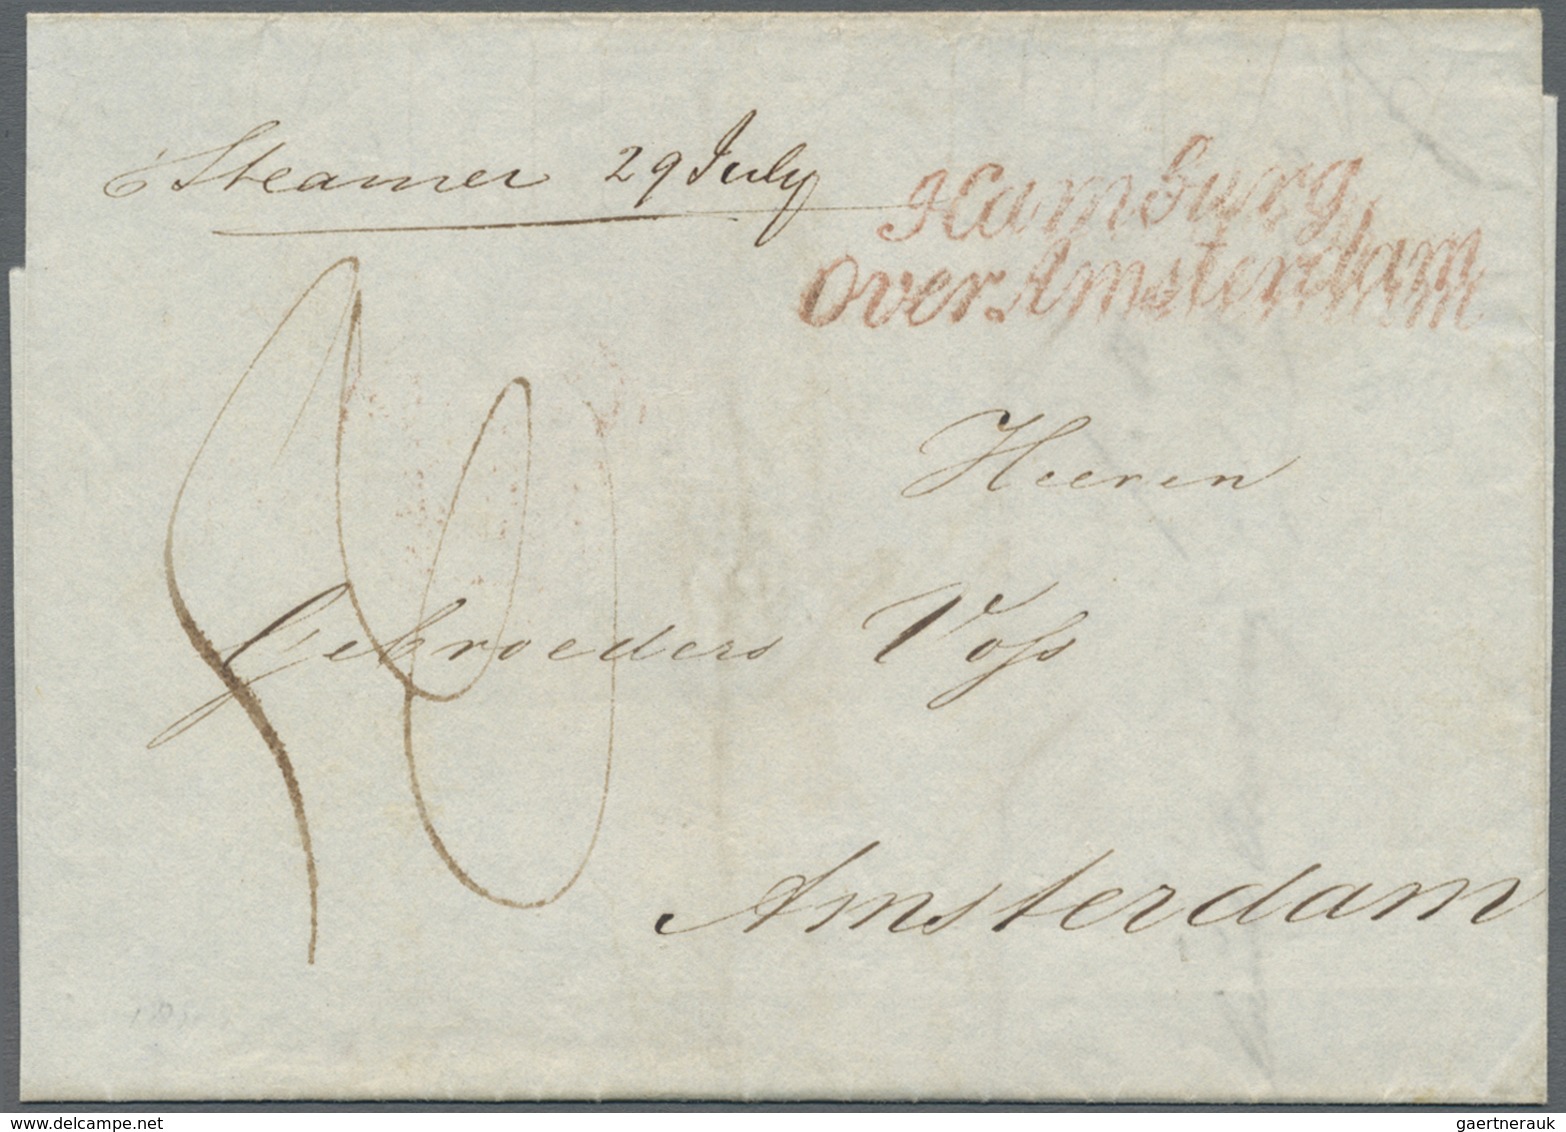 Steamer 29 July
Hamburg
over Amsterdam
Heeren
Gebroeders Voſs
Amsterdam
gaertnerauk